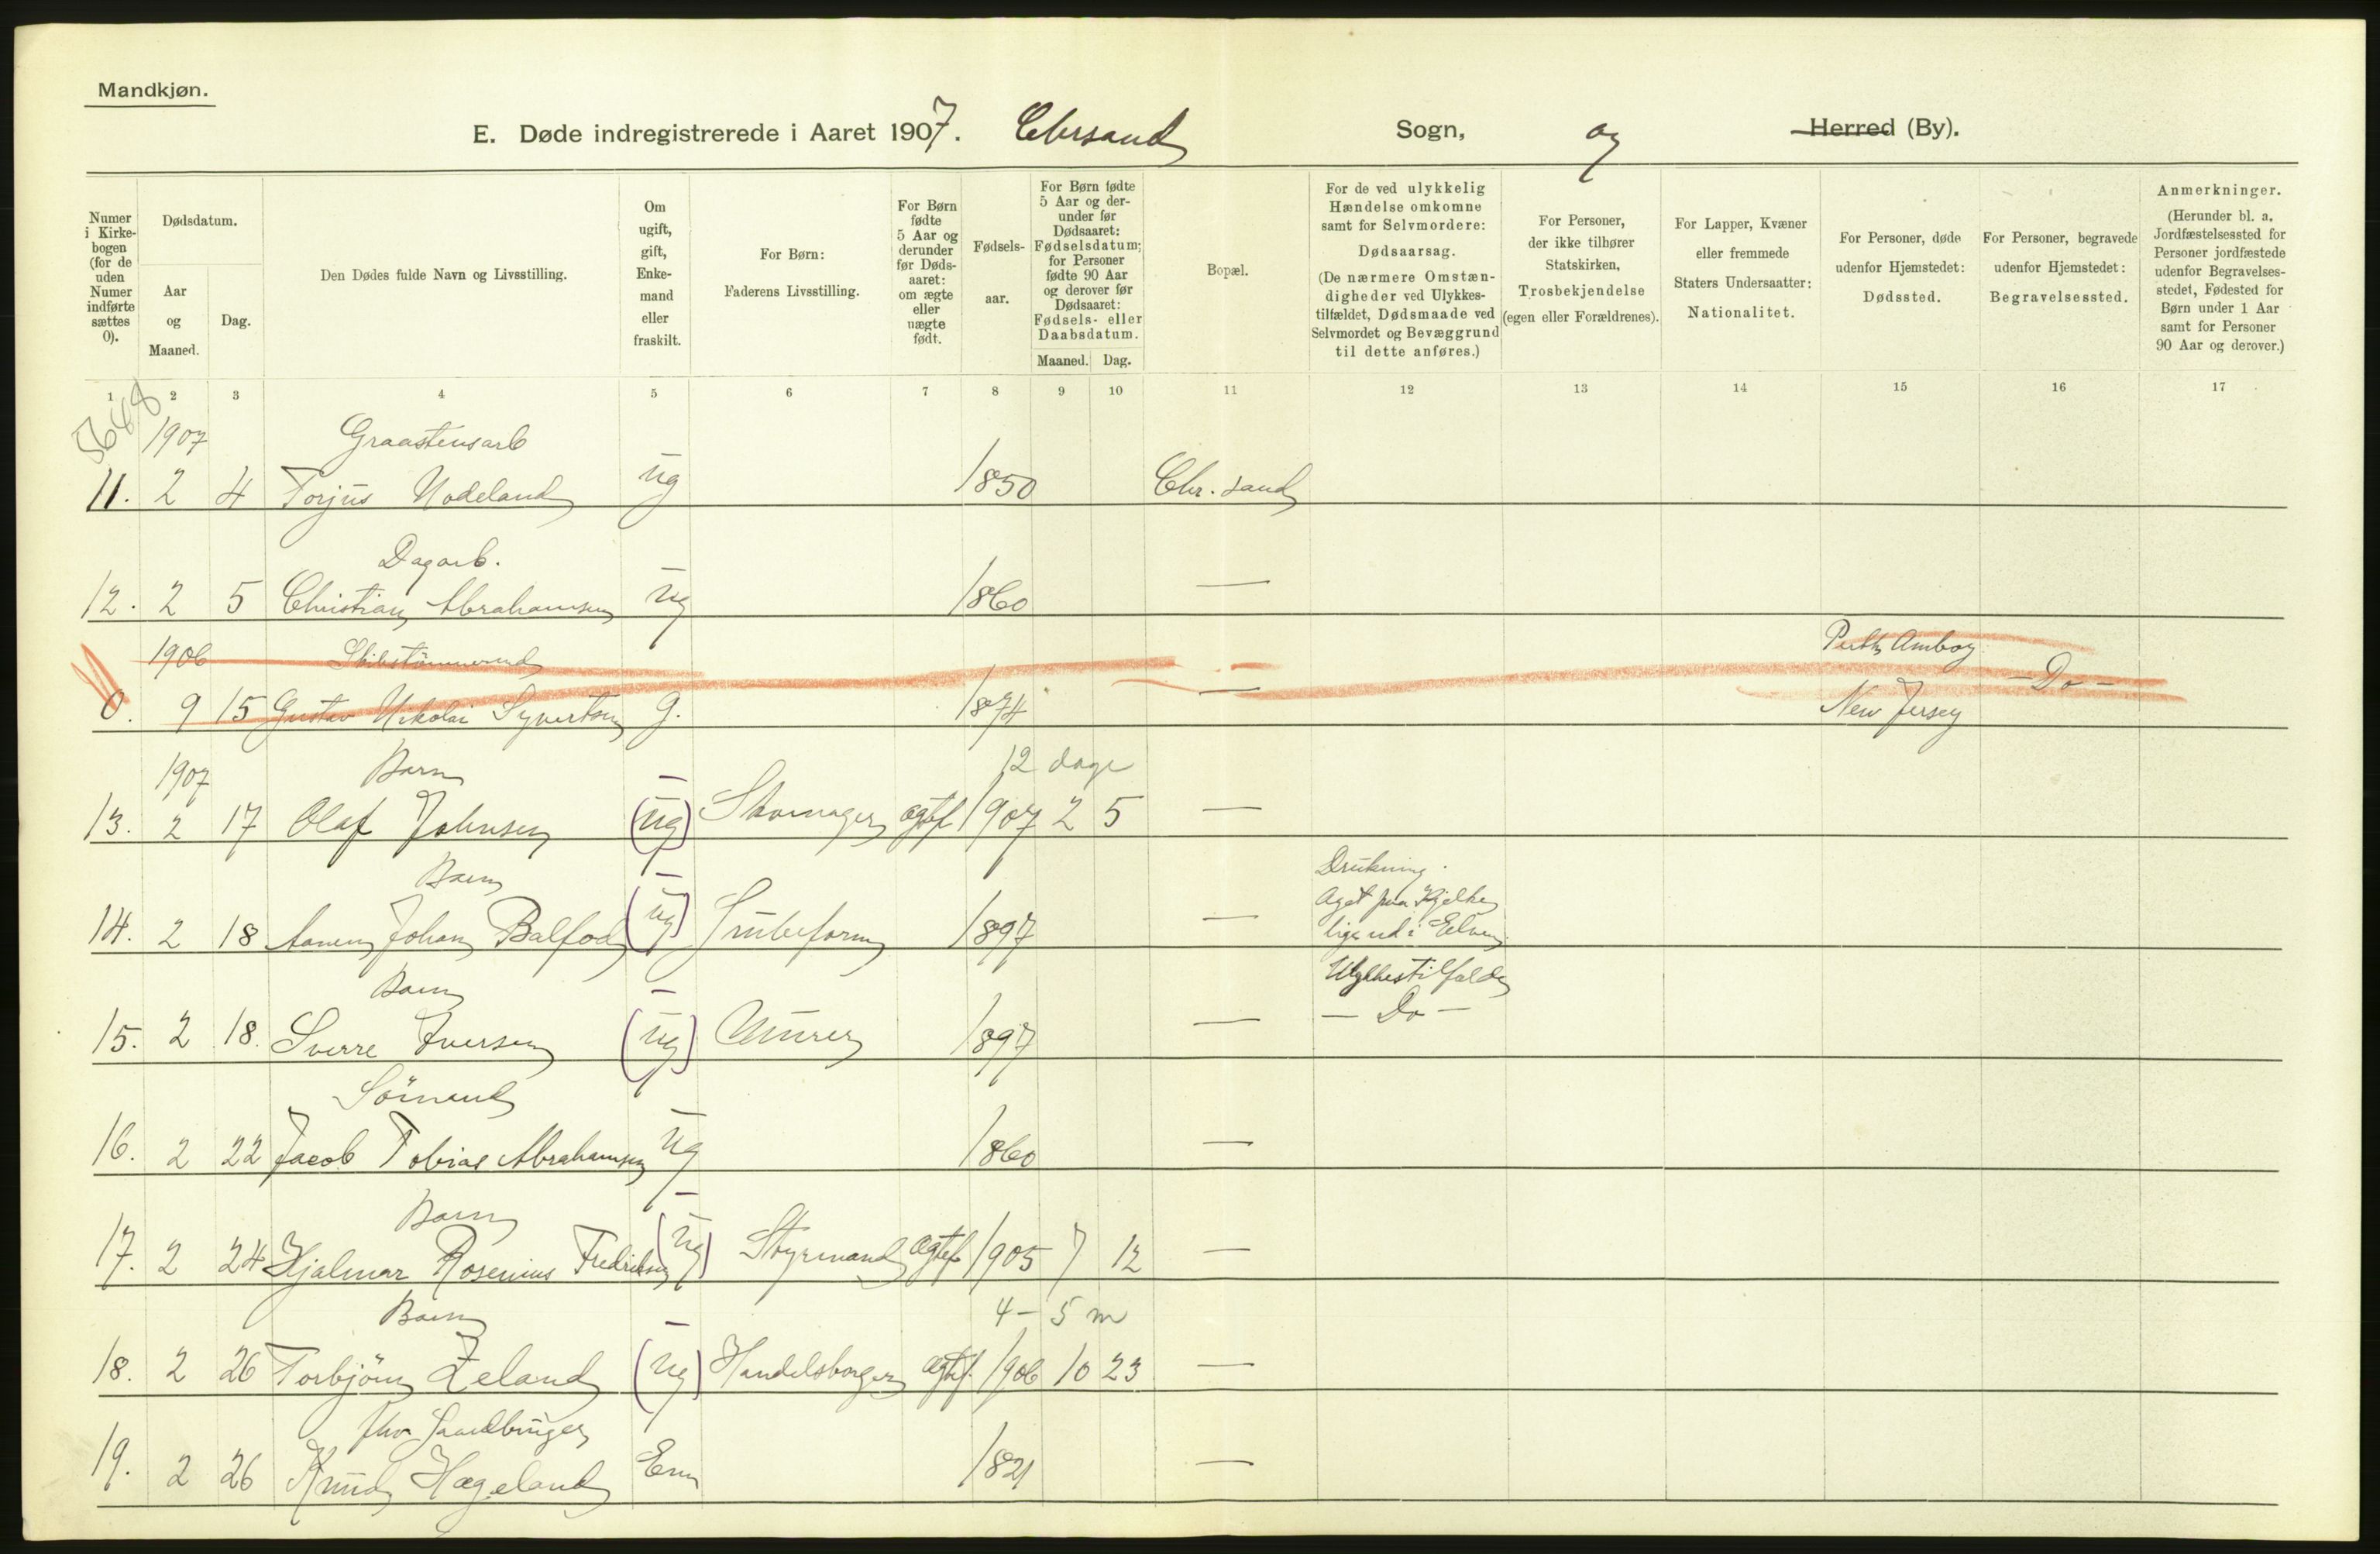 Mandkjøn.
E. Døde indregistrerede i Aaret 1907. Chrsand Sogn, og Herred (By).
Numer i Kirkebogen (for de uden Numer indførte sættes 0).
Dødsdatum.
Aar og Maaned.
Dag.
Den Dødes fulde Navn og Livsstilling.
Om ugift, gift, Enkemand eller fraskilt.
For Børn: Faderens Livsstilling.
For Børn fødte 5 Aar og derunder før Dødsaaret: om ægte eller uægte født.
Fødselsaar.
For Børn fødte 5 Aar og derunder før Dødsaaret: Fødselsdatum; for Personer fødte 90 Aar og derover før Dødsaaret: Fødsels- eller Daabsdatum.
Maaned. Dag.
Bopæl.
For de ved ulykkelig Hændelse omkomne samt for Selvmordere: Dødsaarsag. (De nærmere Omstændigheder ved Ulykkestilfældet, Dødsmaade ved Selvmordet og Bevæggrund til dette anføres.)
For Personer, der ikke tilhører Statskirken, Trosbekjendelse (egen eller Forældrenes).
For Lapper, Kvæner eller fremmede Staters Undersaatter: Nationalitet.
For Personer, døde udenfor Hjemstedet: Dødssted.
For Personer, begravede udenfor Hjemstedet: Begravelsessted.
Anmerkninger. (Herunder bl. a. Jordfæstelsessted for Personer jordfæstede udenfor Begravelsesstedet, Fødested for Børn under 1 Aar samt for Personer 90 Aar og derover.)
1 2 3 4 5 6 7 8 9 10 11 12 13 14 15 16 17
1907 Graastensarb
11. 2 4 Torjus Nodeland ug 1850 Chr. sand
Dagarb.
12. 2 5 Christian Abrahamsen ug 1860 —
1906 Skibstömmermd Perth Amboy
0. 9 15 Gustav Nikolai Syvertsen g. 1874 — New Jersey - Do -
1907 Barn 12 dage
13. 2 17 Olaf Johnsen (ug) Skomager ægtef 1907 2 5 —
Barn Drukning.
Aget paa Kjelke
14. 2 18 Aanen Johan Balfod (ug) 1897 — lige ud i Elven
Barn Ulykkestilfælde
15. 2 18. Sverre Iversen (ug) Murer 1897 — — Do —
Sömand
16. 2 22 Jacob Tobias Abrahamsen ug 1860 —
Barn
17. 2 24 Hjalmar Rosenius Fredriksen (ug) Styrmand ægtef 1905 7 12 —
Barn 4 - 5 m
18. 2 26 Torbjörn Zeland (ug) Handelsborger ægtef. 1906 10 23 —
fhv Gaardbruger
19. 2 26 Knud Hægeland Em 1821 —